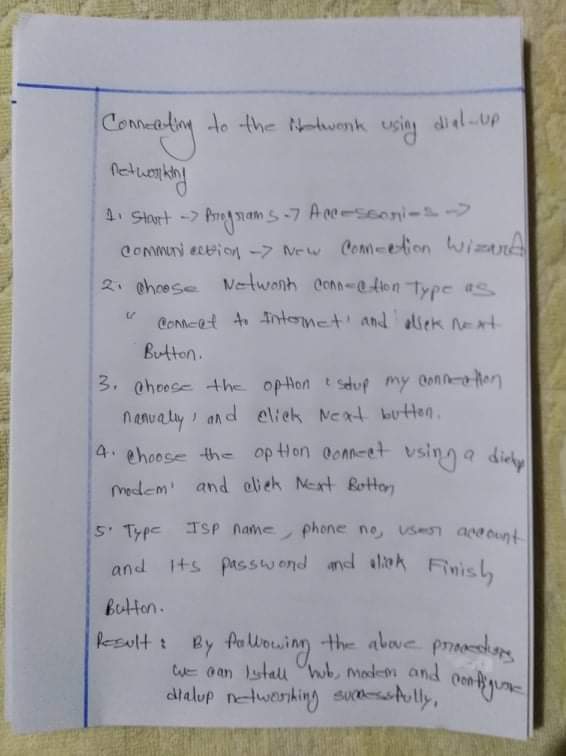 Connecting to the Network using dial-up
networking
1. Start -> Programs -> Accessories ->
Communication -> New Connection Wizard
2. choose Network connection Type as
" connect to Internet' and click Next
Button.
3. choose the option 'setup my connection
manually' and click Next button.
4. choose the option connect using a dialup
modem' and click Next Button
5. Type ISP name, phone no, user account
and its password and click Finish
Button.
Result : By following the above procedures
we can Istall hub, modem and configure
dialup networking successfully.